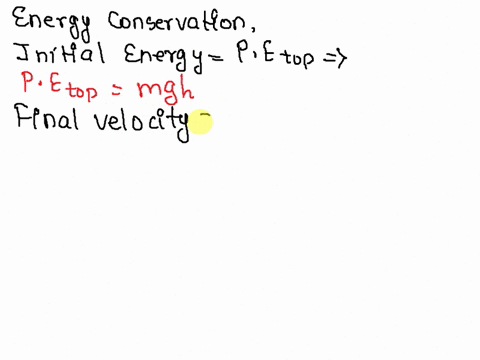 Energy Conservation,
Initial Energy = P.Etop =>
P.Etop = mgh
Final velocity